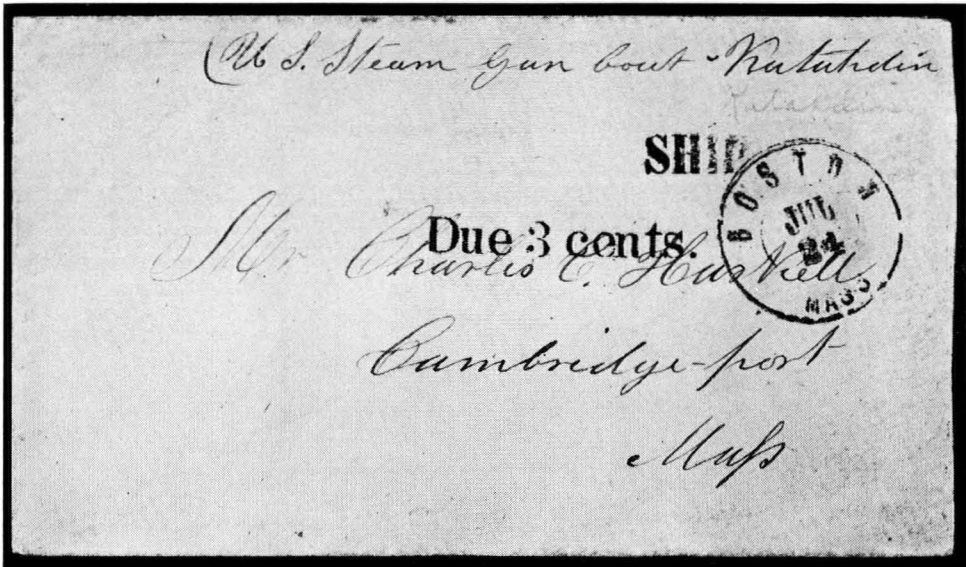 (U S. Steam Gun boat - Katahdin
Katahdin
SHIP
BOSTON
JUL
24
MASS
Due 3 cents.
Mr Charles C. Haskell
Cambridge-port
Mass